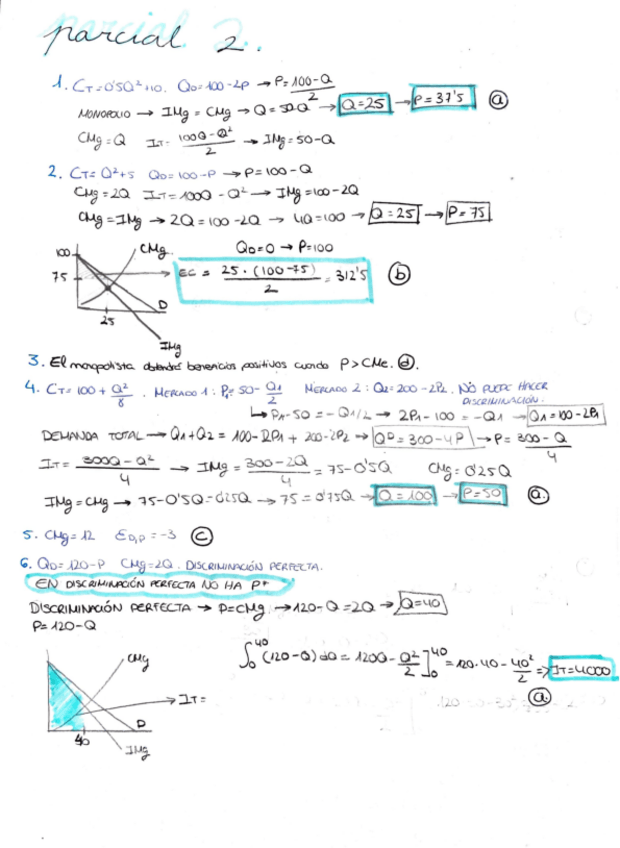 parcial 2.
1. CT=0'5Q²+10. QD=100-2P → P=100-Q/2
MONOPOLIO → IMg = CMg → Q = 50-Q → Q=25 → P=37'5 (a)
CMg=Q IT= 100Q-Q²/2 → IMg=50-Q
2. CT=Q²+5 QD=100-P → P=100-Q
CMg=2Q IT=100Q-Q² → IMg=100-2Q
CMg=IMg → 2Q=100-2Q → 4Q=100 → Q=25 → P=75
100 CMg QD=0 → P=100
75 EC = 25·(100-75)/2 = 312'5 (b)
D
25
IMg
3. El monopolista obtendrá beneficios positivos cuando P>CMe. (d).
4. CT=100+Q²/8. MERCADO 1: P1=50-Q1/2 MERCADO 2: Q2=200-2P2. NO PUEDE HACER
DISCRIMINACIÓN.
↳ P1-50=-Q1/2 → 2P1-100=-Q1 → Q1=100-2P1
DEMANDA TOTAL → Q1+Q2 = 100-2P1+200-2P2 → QD=300-4P → P=300-Q/4
IT=300Q-Q²/4 → IMg=300-2Q/4=75-0'5Q CMg=0'25Q
IMg=CMg → 75-0'5Q=0'25Q → 75=0'75Q → Q=100 → P=50 (a.)
5. CMg=12 ED,P=-3 (c)
6. QD=120-P CMg=2Q. DISCRIMINACIÓN PERFECTA.
EN DISCRIMINACIÓN PERFECTA NO HA P*
DISCRIMINACIÓN PERFECTA → P=CMg → 120-Q=2Q → Q=40
P=120-Q
∫₀⁴⁰(120-Q)dQ=120Q-Q²/2]₀⁴⁰=120·40-40²/2 ⇒ IT=4000
CMg
(a.)
→ IT=
D
40
IMg